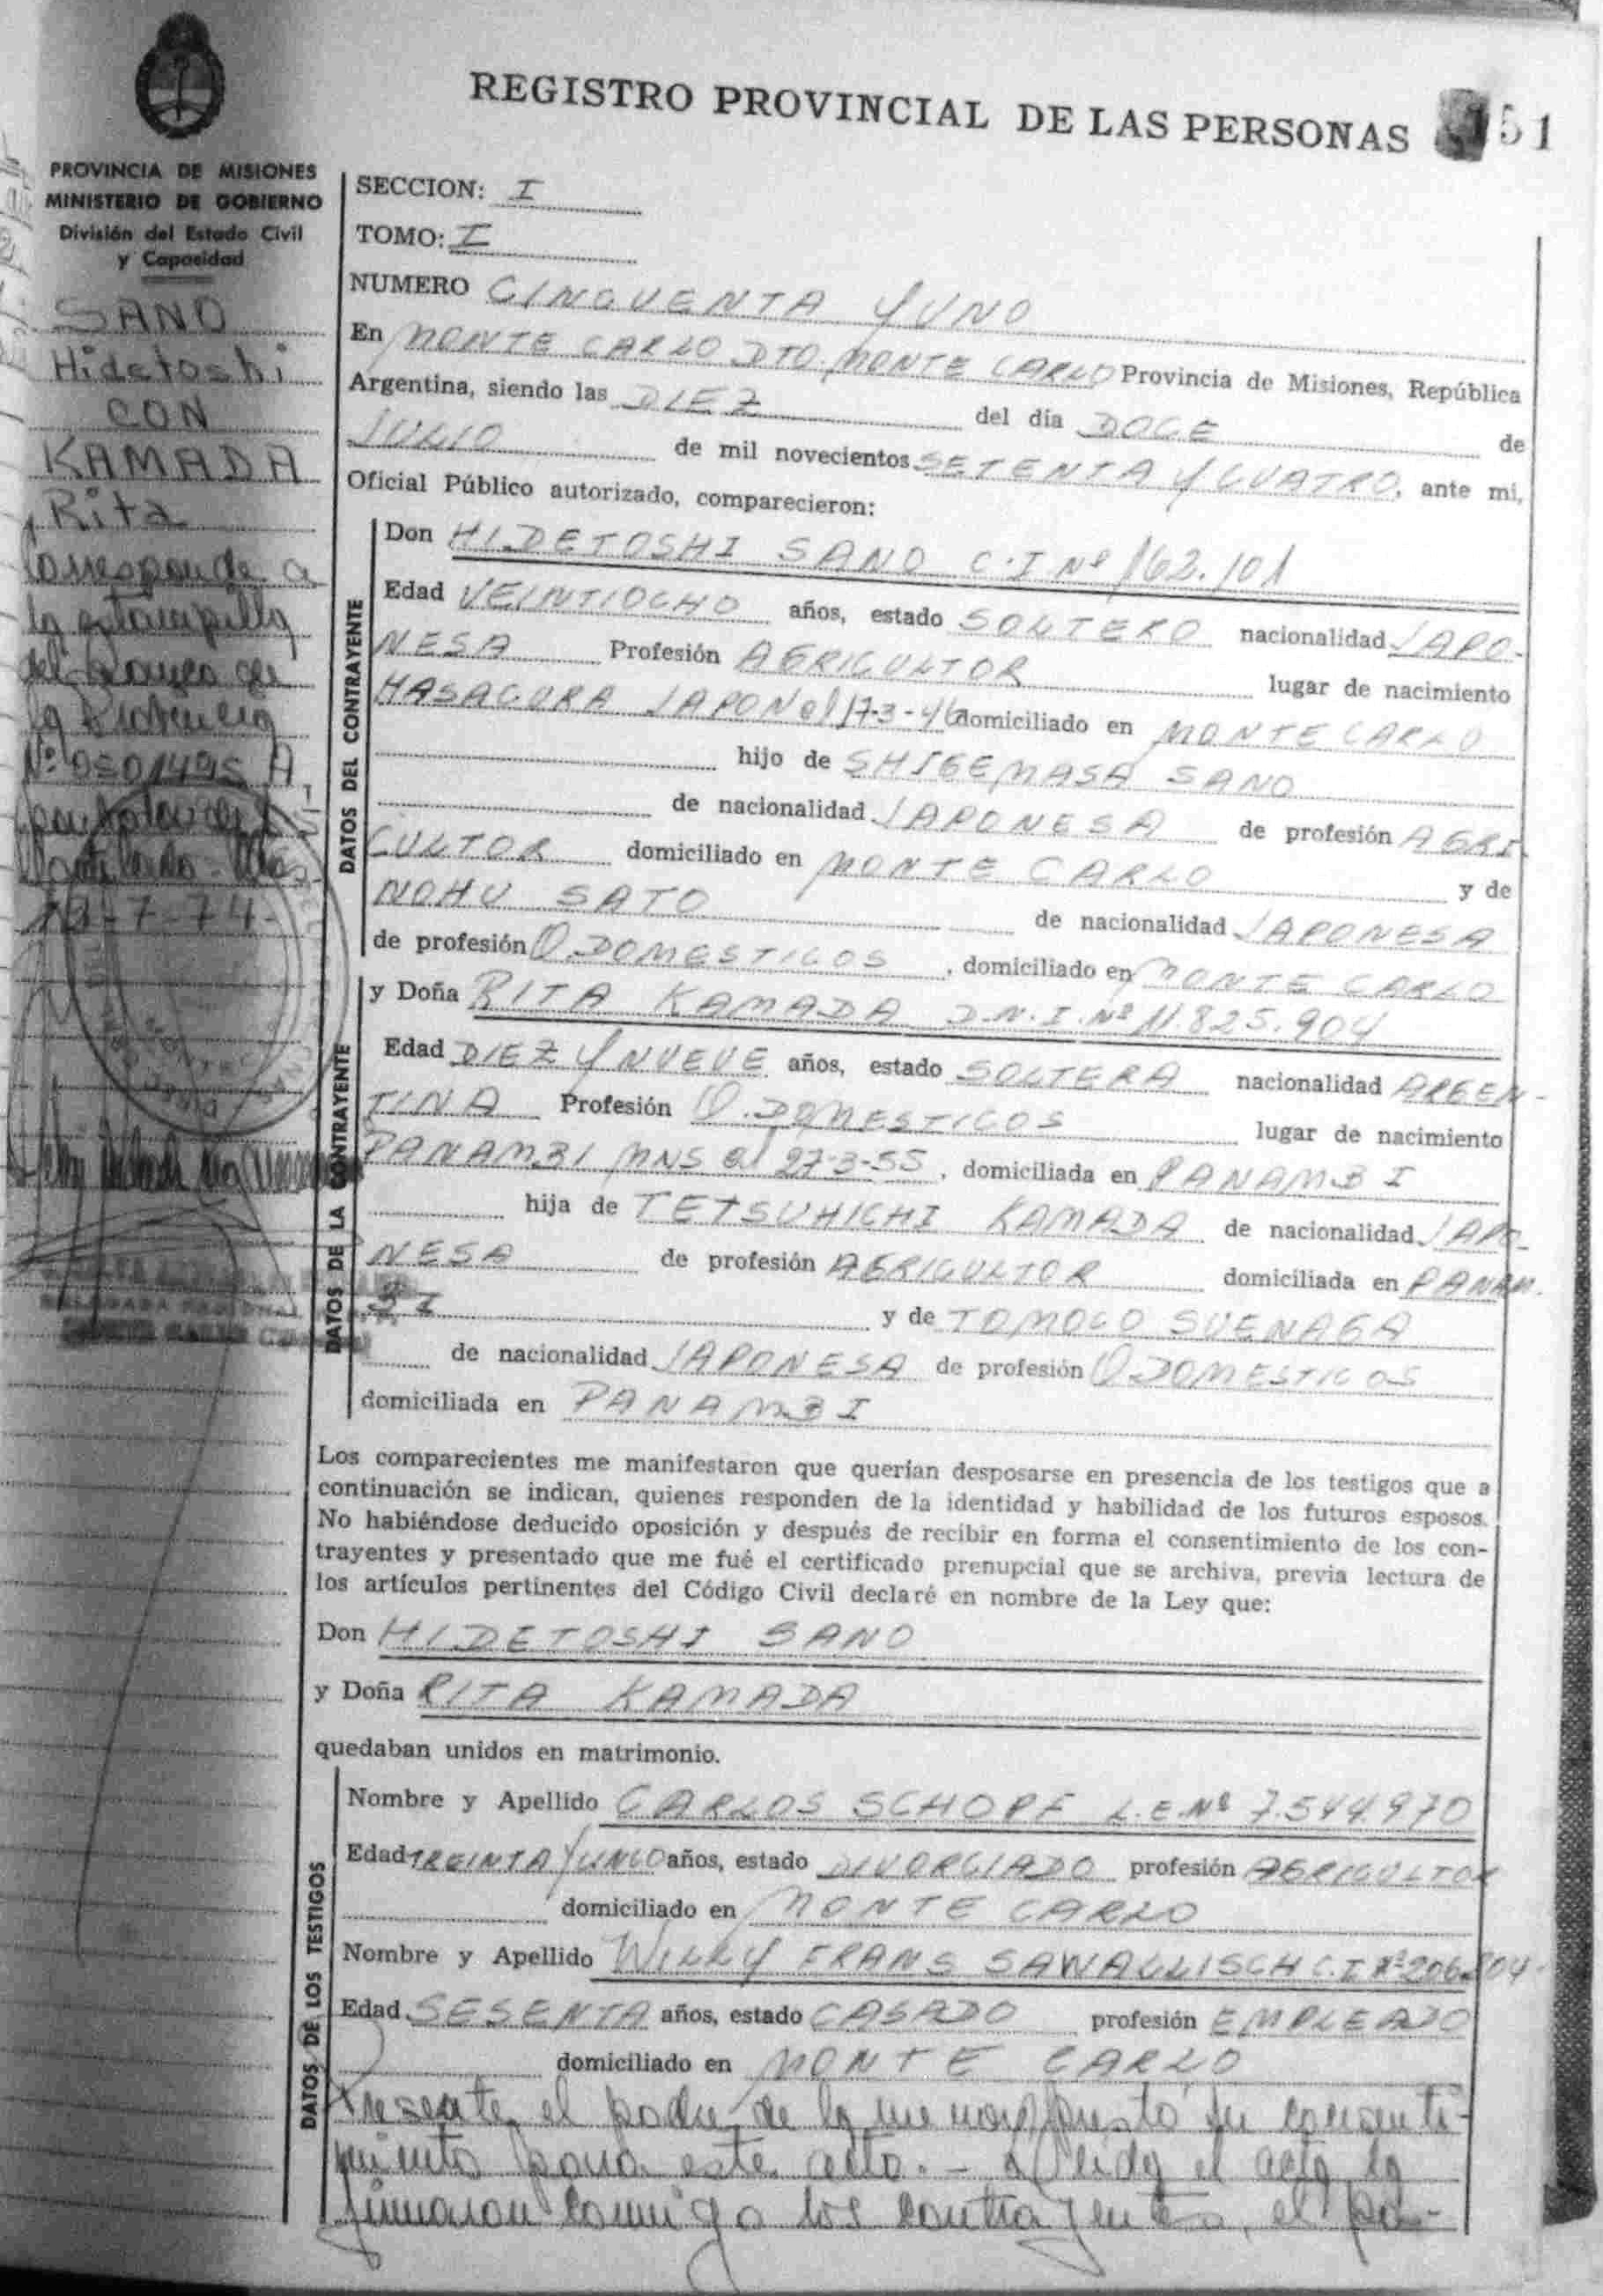 REGISTRO PROVINCIAL DE LAS PERSONAS 51
PROVINCIA DE MISIONES
MINISTERIO DE GOBIERNO
División del Estado Civil
y Capacidad
SANO
Hidetoshi
CON
KAMADA
Rita
Corresponde a
la estampilla
del Banco de
la Provincia
Nº 0501495 A
12-7-74-
SECCION: I
TOMO: I
NUMERO CINCUENTA Y UNO
En MONTE CARLO DTO. MONTE CARLO Provincia de Misiones, República
Argentina, siendo las DIEZ del día DOCE de
JULIO de mil novecientos SETENTA Y CUATRO, ante mi,
Oficial Público autorizado, comparecieron:
DATOS DEL CONTRAYENTE
Don HIDETOSHI SANO C.I Nº 162.101
Edad VEINTIOCHO años, estado SOLTERO nacionalidad JAPO-
NESA Profesión AGRICULTOR lugar de nacimiento
JAPON el 17-3-46 domiciliado en MONTE CARLO
hijo de SHIGEMASA SANO
de nacionalidad JAPONESA de profesión AGRI-
CULTOR domiciliado en MONTE CARLO y de
NOHU SATO de nacionalidad JAPONESA
de profesión Q.DOMESTICOS, domiciliado en MONTE CARLO
DATOS DE LA CONTRAYENTE
y Doña RITA KAMADA D.N.I. Nº 11.825.904
Edad DIEZ Y NUEVE años, estado SOLTERA nacionalidad ARGEN-
TINA Profesión Q.DOMESTICOS lugar de nacimiento
PANAMBI MNS el 27-3-55, domiciliada en PANAMBI
hija de TETSUHICHI KAMADA de nacionalidad JAPO-
NESA de profesión AGRICULTOR domiciliada en PANAM-
BI y de TOMOCO SUENAGA
de nacionalidad JAPONESA de profesión Q DOMESTICOS
domiciliada en PANAMBI
Los comparecientes me manifestaron que querían desposarse en presencia de los testigos que a
continuación se indican, quienes responden de la identidad y habilidad de los futuros esposos.
No habiéndose deducido oposición y después de recibir en forma el consentimiento de los con-
trayentes y presentado que me fué el certificado prenupcial que se archiva, previa lectura de
los artículos pertinentes del Código Civil declaré en nombre de la Ley que:
Don HIDETOSHI SANO
y Doña RITA KAMADA
quedaban unidos en matrimonio.
DATOS DE LOS TESTIGOS
Nombre y Apellido CARLOS SCHOPF L.E.Nº 7.544.970
Edad TREINTA Y años, estado DIVORCIADO profesión AGRICULTOR
domiciliado en MONTE CARLO
Nombre y Apellido WILLY FRANS SAWALLISCH C.I Nº 206.
Edad SESENTA años, estado CASADO profesión EMPLEADO
domiciliado en MONTE CARLO
Presente el padre de la menor presta su consenti-
miento para este acto.- Leida el acta la
firmaron conmigo los contrayentes, el pa-